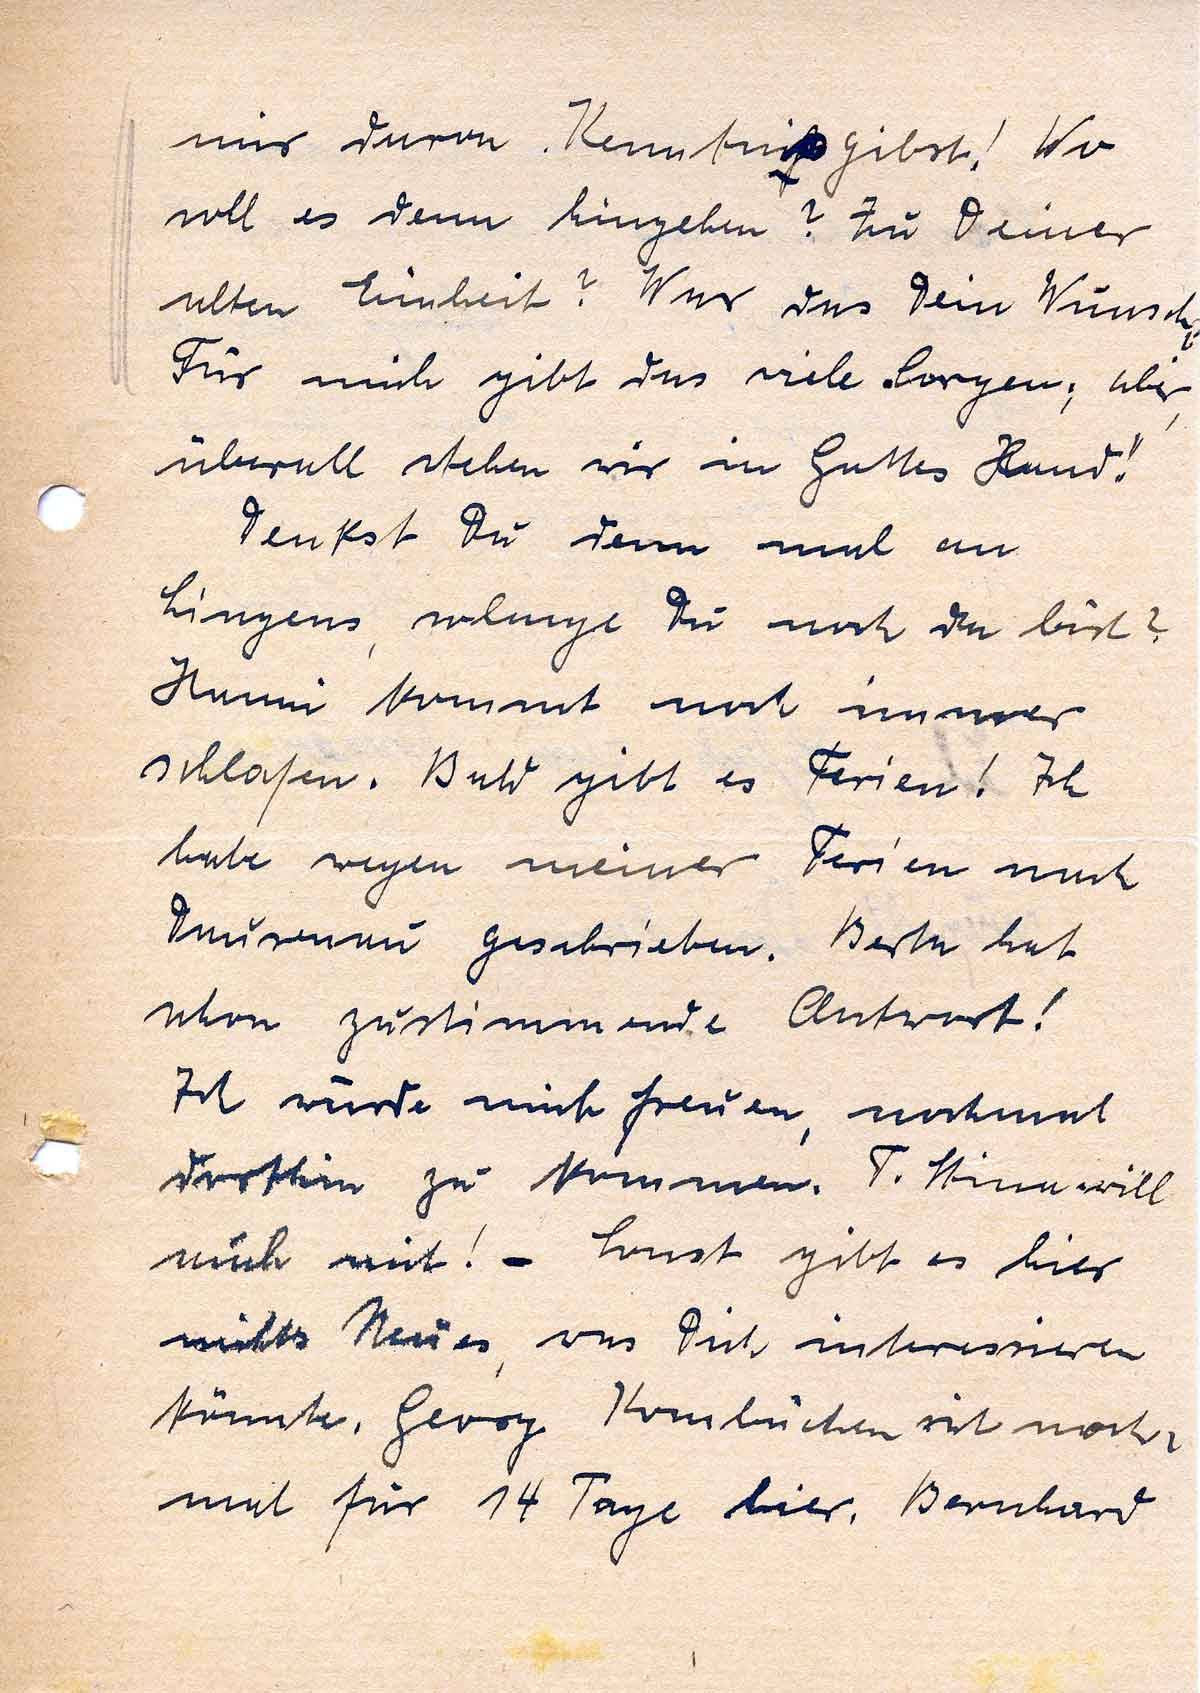 mir davon Kenntnis gibst! Wo
soll es denn hingehen? Zu Deiner
alten Einheit? War das Dein Wunsch?
Für mich gibt das viele Sorgen; aber,
überall stehen wir in Gottes Hand!
Denkst Du denn mal an
Lingens, solange Du noch da bist?
Hanni kommt noch immer
schlafen. Bald gibt es Ferien! Ich
habe wegen meiner Ferien nach
Dausenau geschrieben. Berta hat
schon zustimmende Antwort!
Ich würde mich freuen, nochmal
dorthin zu kommen. T. Stina will
auch mit! - Sonst gibt es hier
nichts Neues, was Dich interessieren
könnte. Georg ist noch-
mal für 14 Tage hier. Bernhard